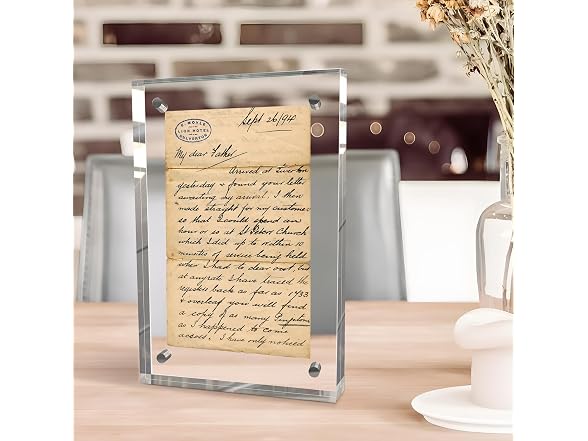 LION HOTEL
Sept 26/94
My dear Father
Arrived at Tiverton
yesterday & found your letter
awaiting my arrival. I then
made straight for my customer
so that I could spend an
hour or so at St Peters Church
which I did up to within 10
minutes of service being held
when I had to clear out, but
at any rate I have traced the
registers back as far as 1733
& overleaf you will find
a copy of as many
as I happened to come
across. I have only noticed